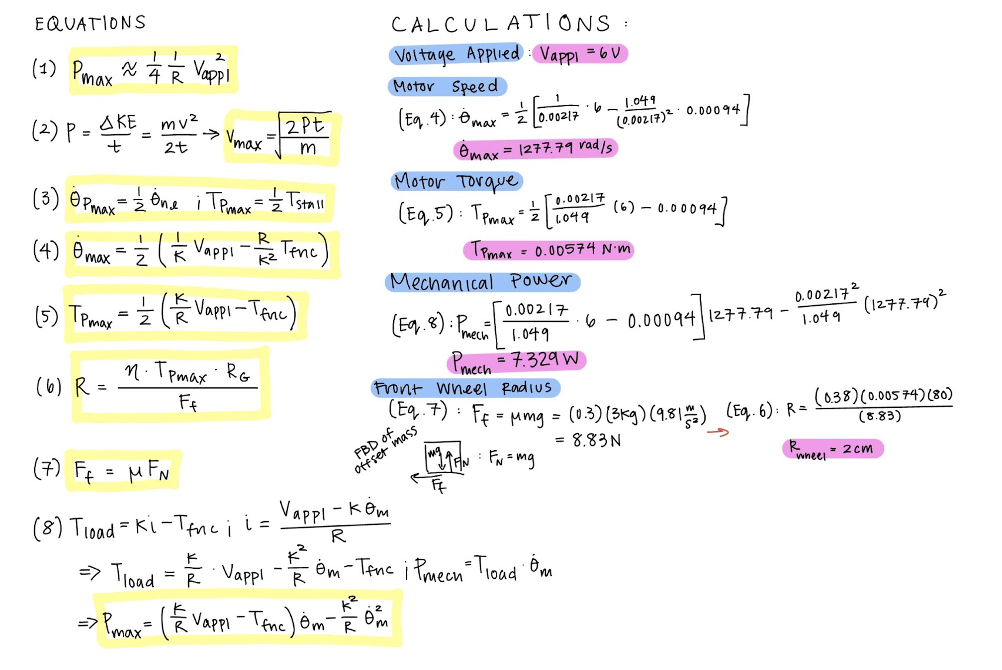 EQUATIONS
(1) Pmax ≈ 1/4 1/R Vappl²
(2) P = ΔKE/t = mv²/2t → Vmax = √(2Pt/m)
(3) θ̇Pmax = 1/2 θ̇n.l ; TPmax = 1/2 Tstall
(4) θ̇max = 1/2 (1/K Vappl − R/K² Tfnc)
(5) TPmax = 1/2 (K/R Vappl − Tfnc)
(6) R = η · TPmax · RG / Ff
(7) Ff = μ FN
(8) Tload = Ki − Tfnc ; i = (Vappl − K θ̇m)/R
⇒ Tload = K/R · Vappl − K²/R θ̇m − Tfnc ; Pmech = Tload · θ̇m
⇒ Pmax = (K/R Vappl − Tfnc) θ̇m − K²/R θ̇m²
CALCULATIONS :
Voltage Applied : Vappl = 6V
Motor Speed
(Eq. 4) : θ̇max = 1/2 [1/0.00217 · 6 − 1.049/(0.00217)² · 0.00094]
θ̇max = 1277.79 rad/s
Motor Torque
(Eq. 5) : TPmax = 1/2 [0.00217/1.049 (6) − 0.00094]
TPmax = 0.00574 N·m
Mechanical Power
(Eq. 8) : Pmech = [0.00217/1.049 · 6 − 0.00094] 1277.79 − 0.00217²/1.049 (1277.79)²
Pmech = 7.329 W
Front Wheel Radius
(Eq. 7) : Ff = μmg = (0.3)(3kg)(9.81 m/s²)
= 8.83N
→ (Eq. 6) : R = (0.38)(0.00574)(80)/(8.83)
Rwheel = 2cm
FBD of
offset mass
mg FN : FN = mg
Ff